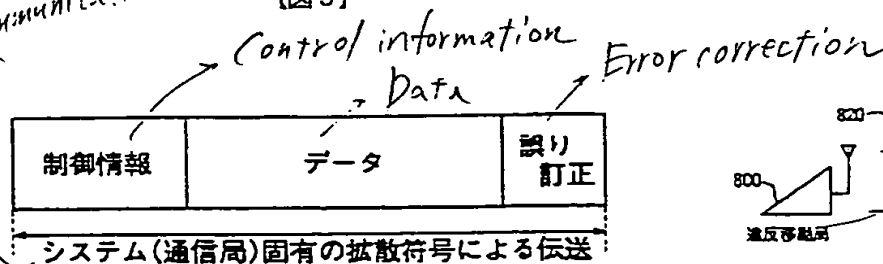 Control information
Data
Error correction
制御情報
データ
誤り
訂正
システム(通信局)固有の拡散符号による伝送
820
800
違反移動局